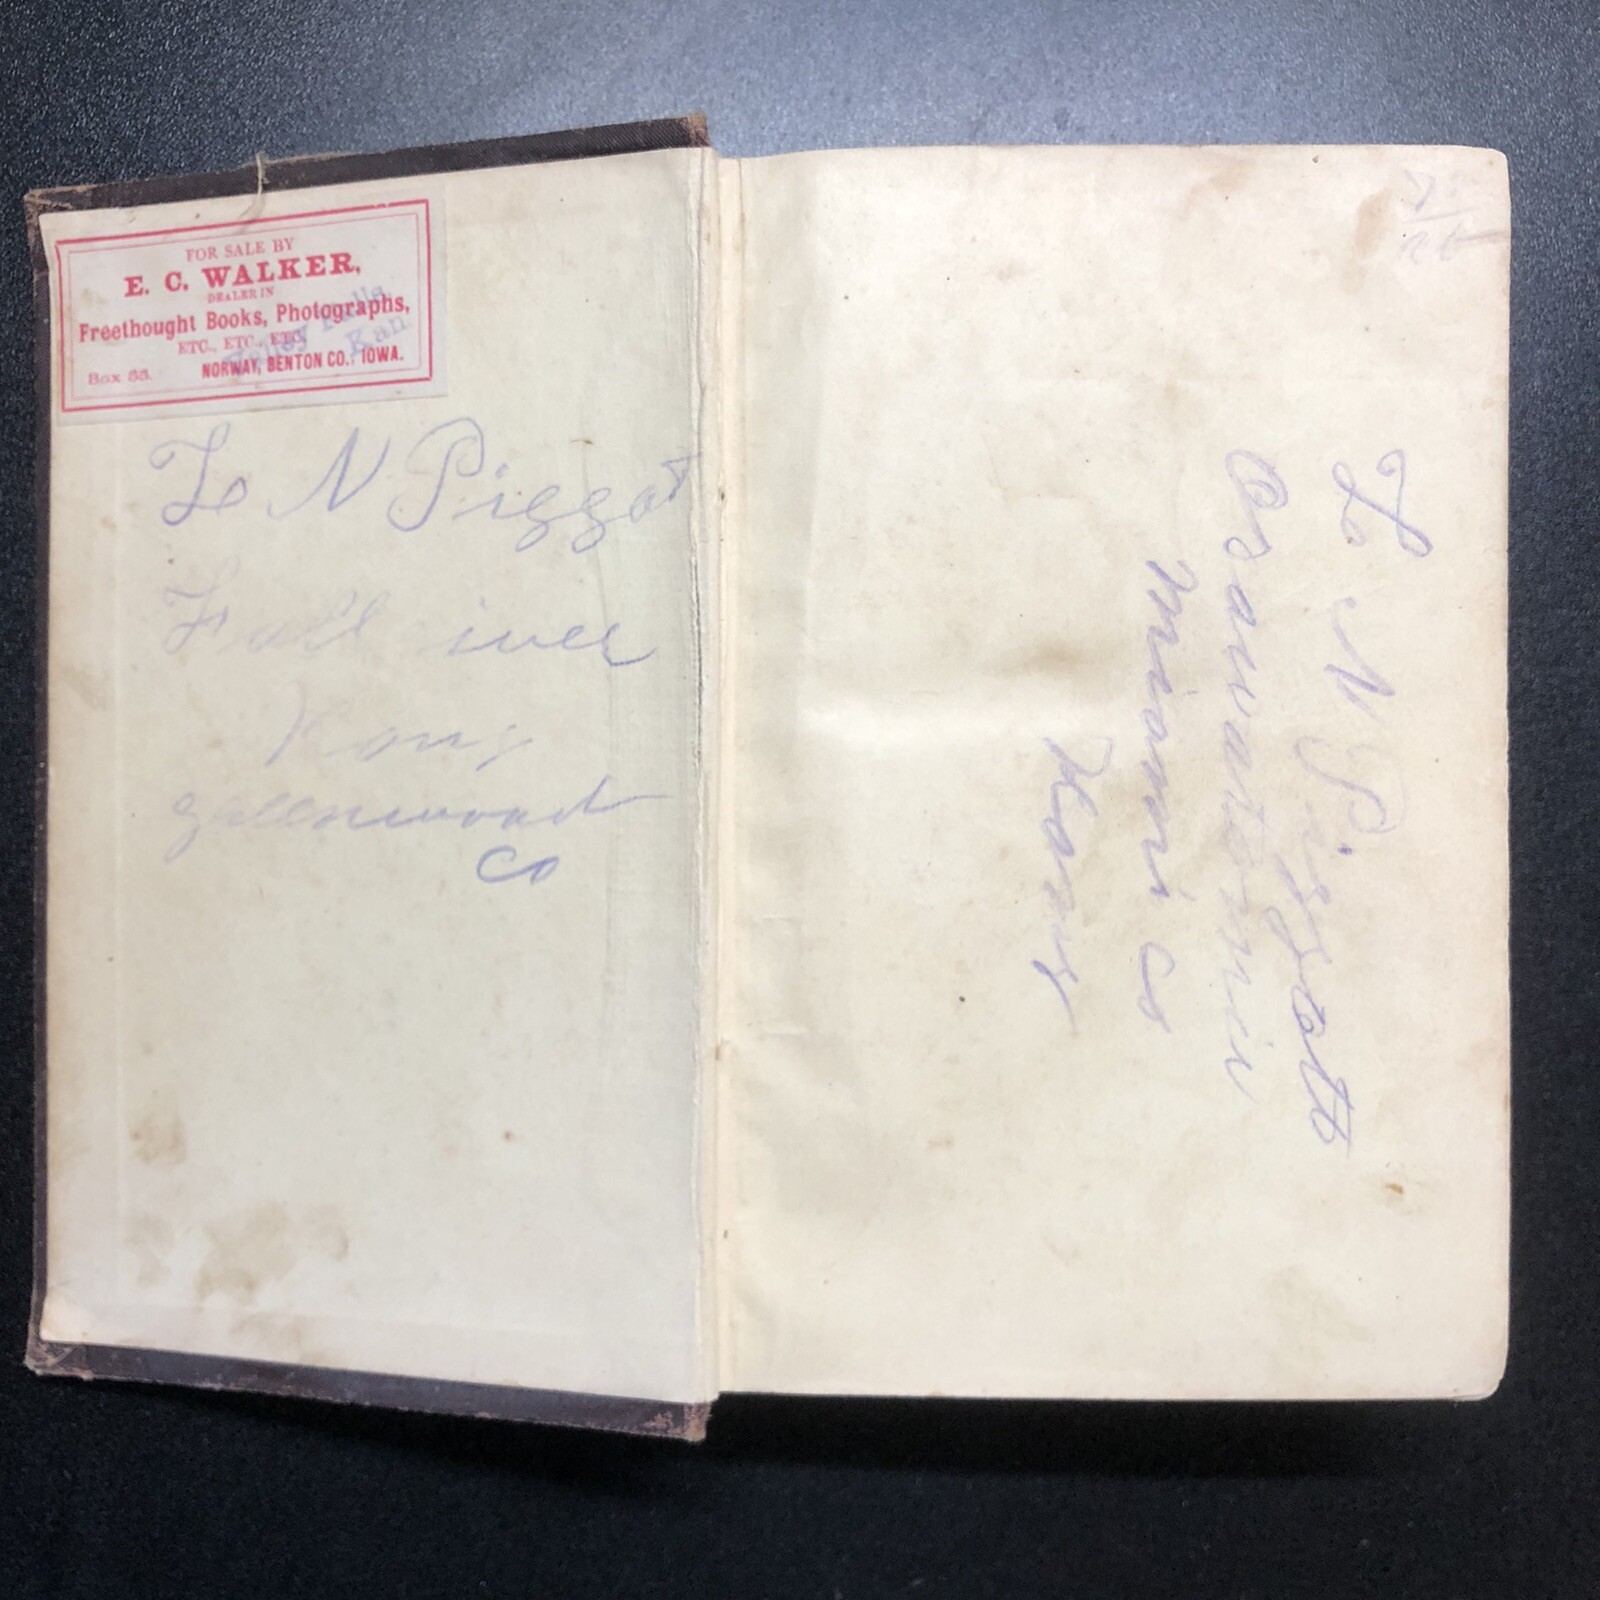 FOR SALE BY
E. C. WALKER,
DEALER IN
Freethought Books, Photographs,
ETC., ETC., ETC.
Box 55. NORWAY, BENTON CO., IOWA.
Valley Falls
Kan
L N Piggot
Fall iver
Kans
greenwood
Co
75
L N Piggott
Osawatomie
Miami co
Kans